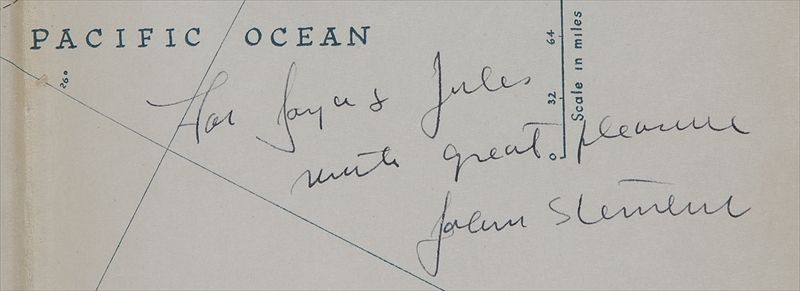 PACIFIC OCEAN
26°
64
32
0
Scale in miles
For Joyce & Jules
with great pleasure